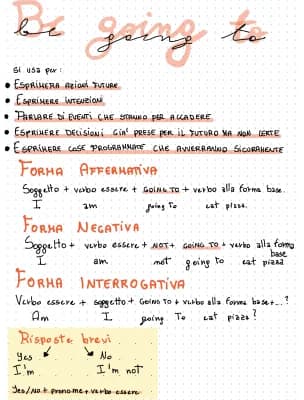 Be going to
be going to
si usa per:
• Esprimere azioni future
• Esprimere intenzioni
• Parlare di eventi che stanno per accadere
• Esprimere decisioni gia' prese per il futuro ma non certe
• Esprimere cose programmate che avverranno sicuramente
Forma Affermativa
Soggetto + verbo essere + going to + verbo alla forma base.
I am going to eat pizza.
Forma Negativa
Soggetto + verbo essere + not + going to + verbo alla forma
base
I am not going to eat pizza
Forma Interrogativa
Verbo essere + soggetto + Going to + verbo alla forma base+...?
Am I going to eat pizza?
Risposte brevi
Yes No
I'm I'm not
Yes/No + pronome + verbo essere